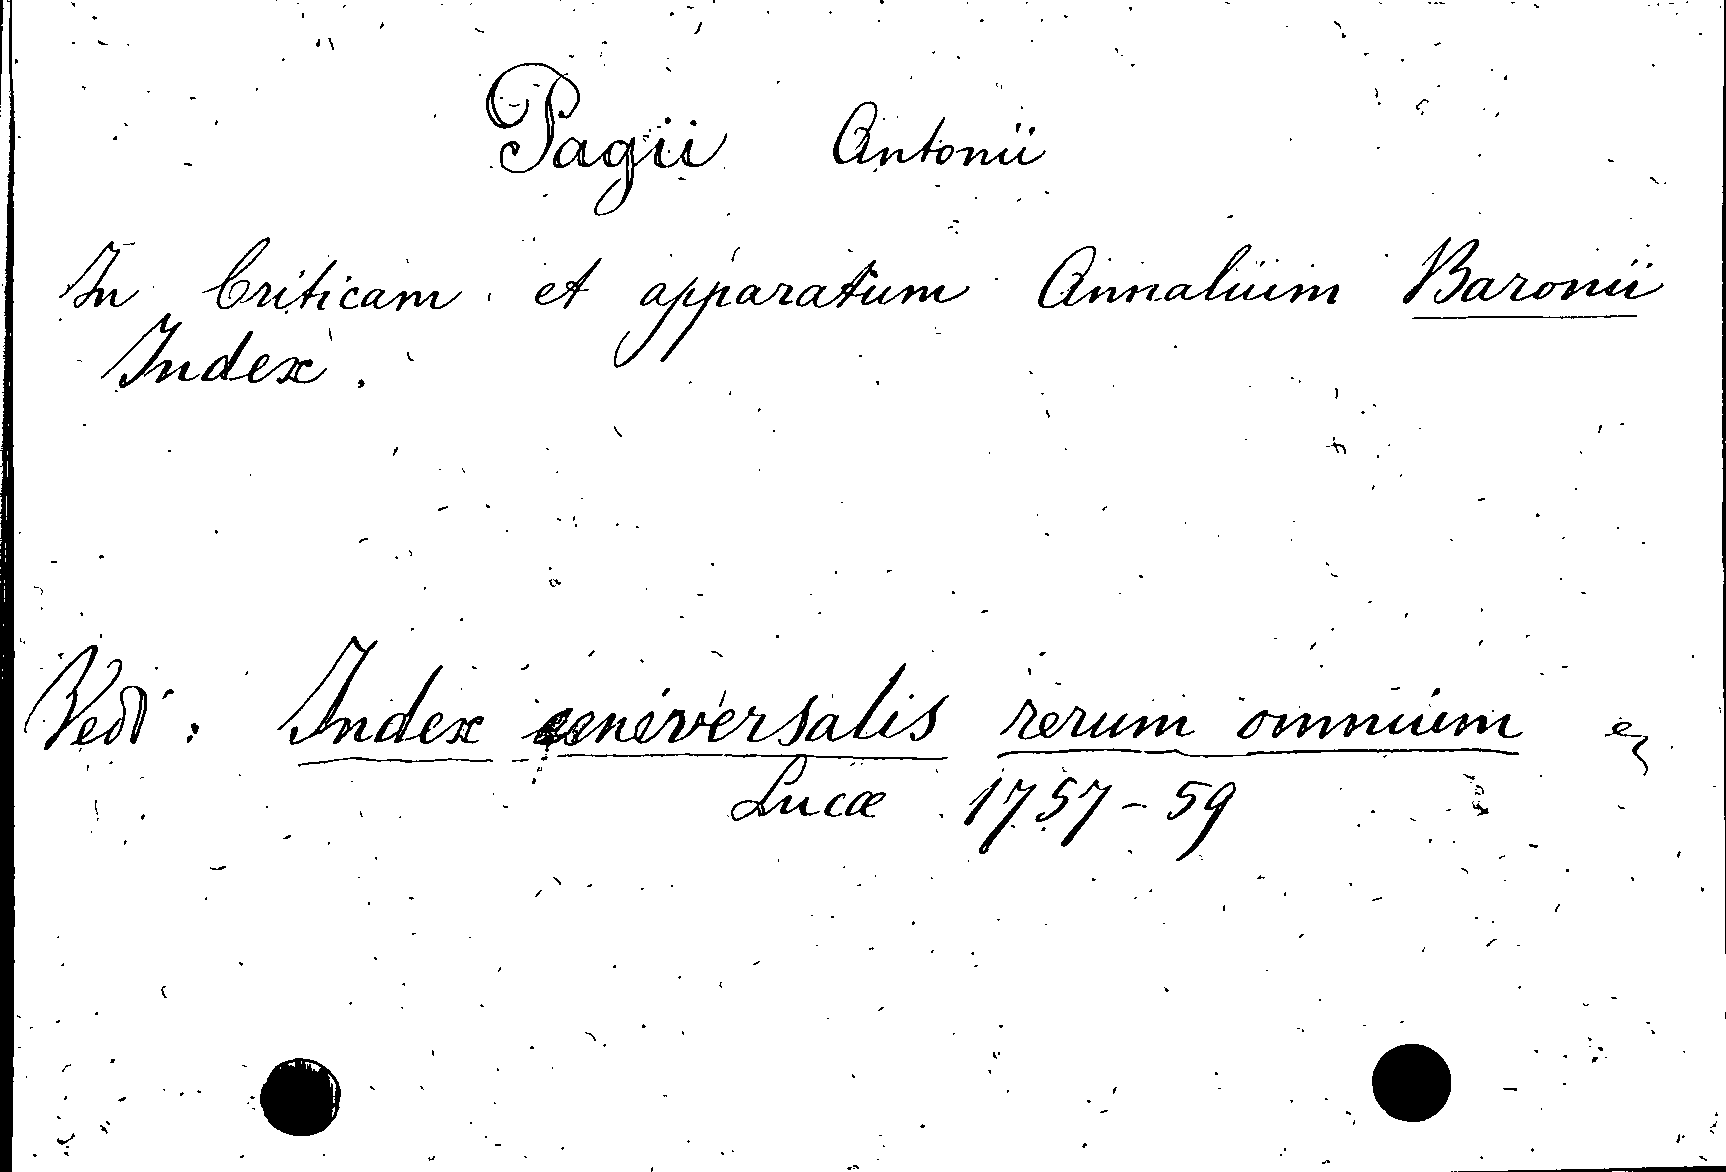 Pagii Antonii
In Criticam et apparatum Annalium Baronii
Index.
Vedi: Index universalis rerum omnium
Lucæ 1757-59